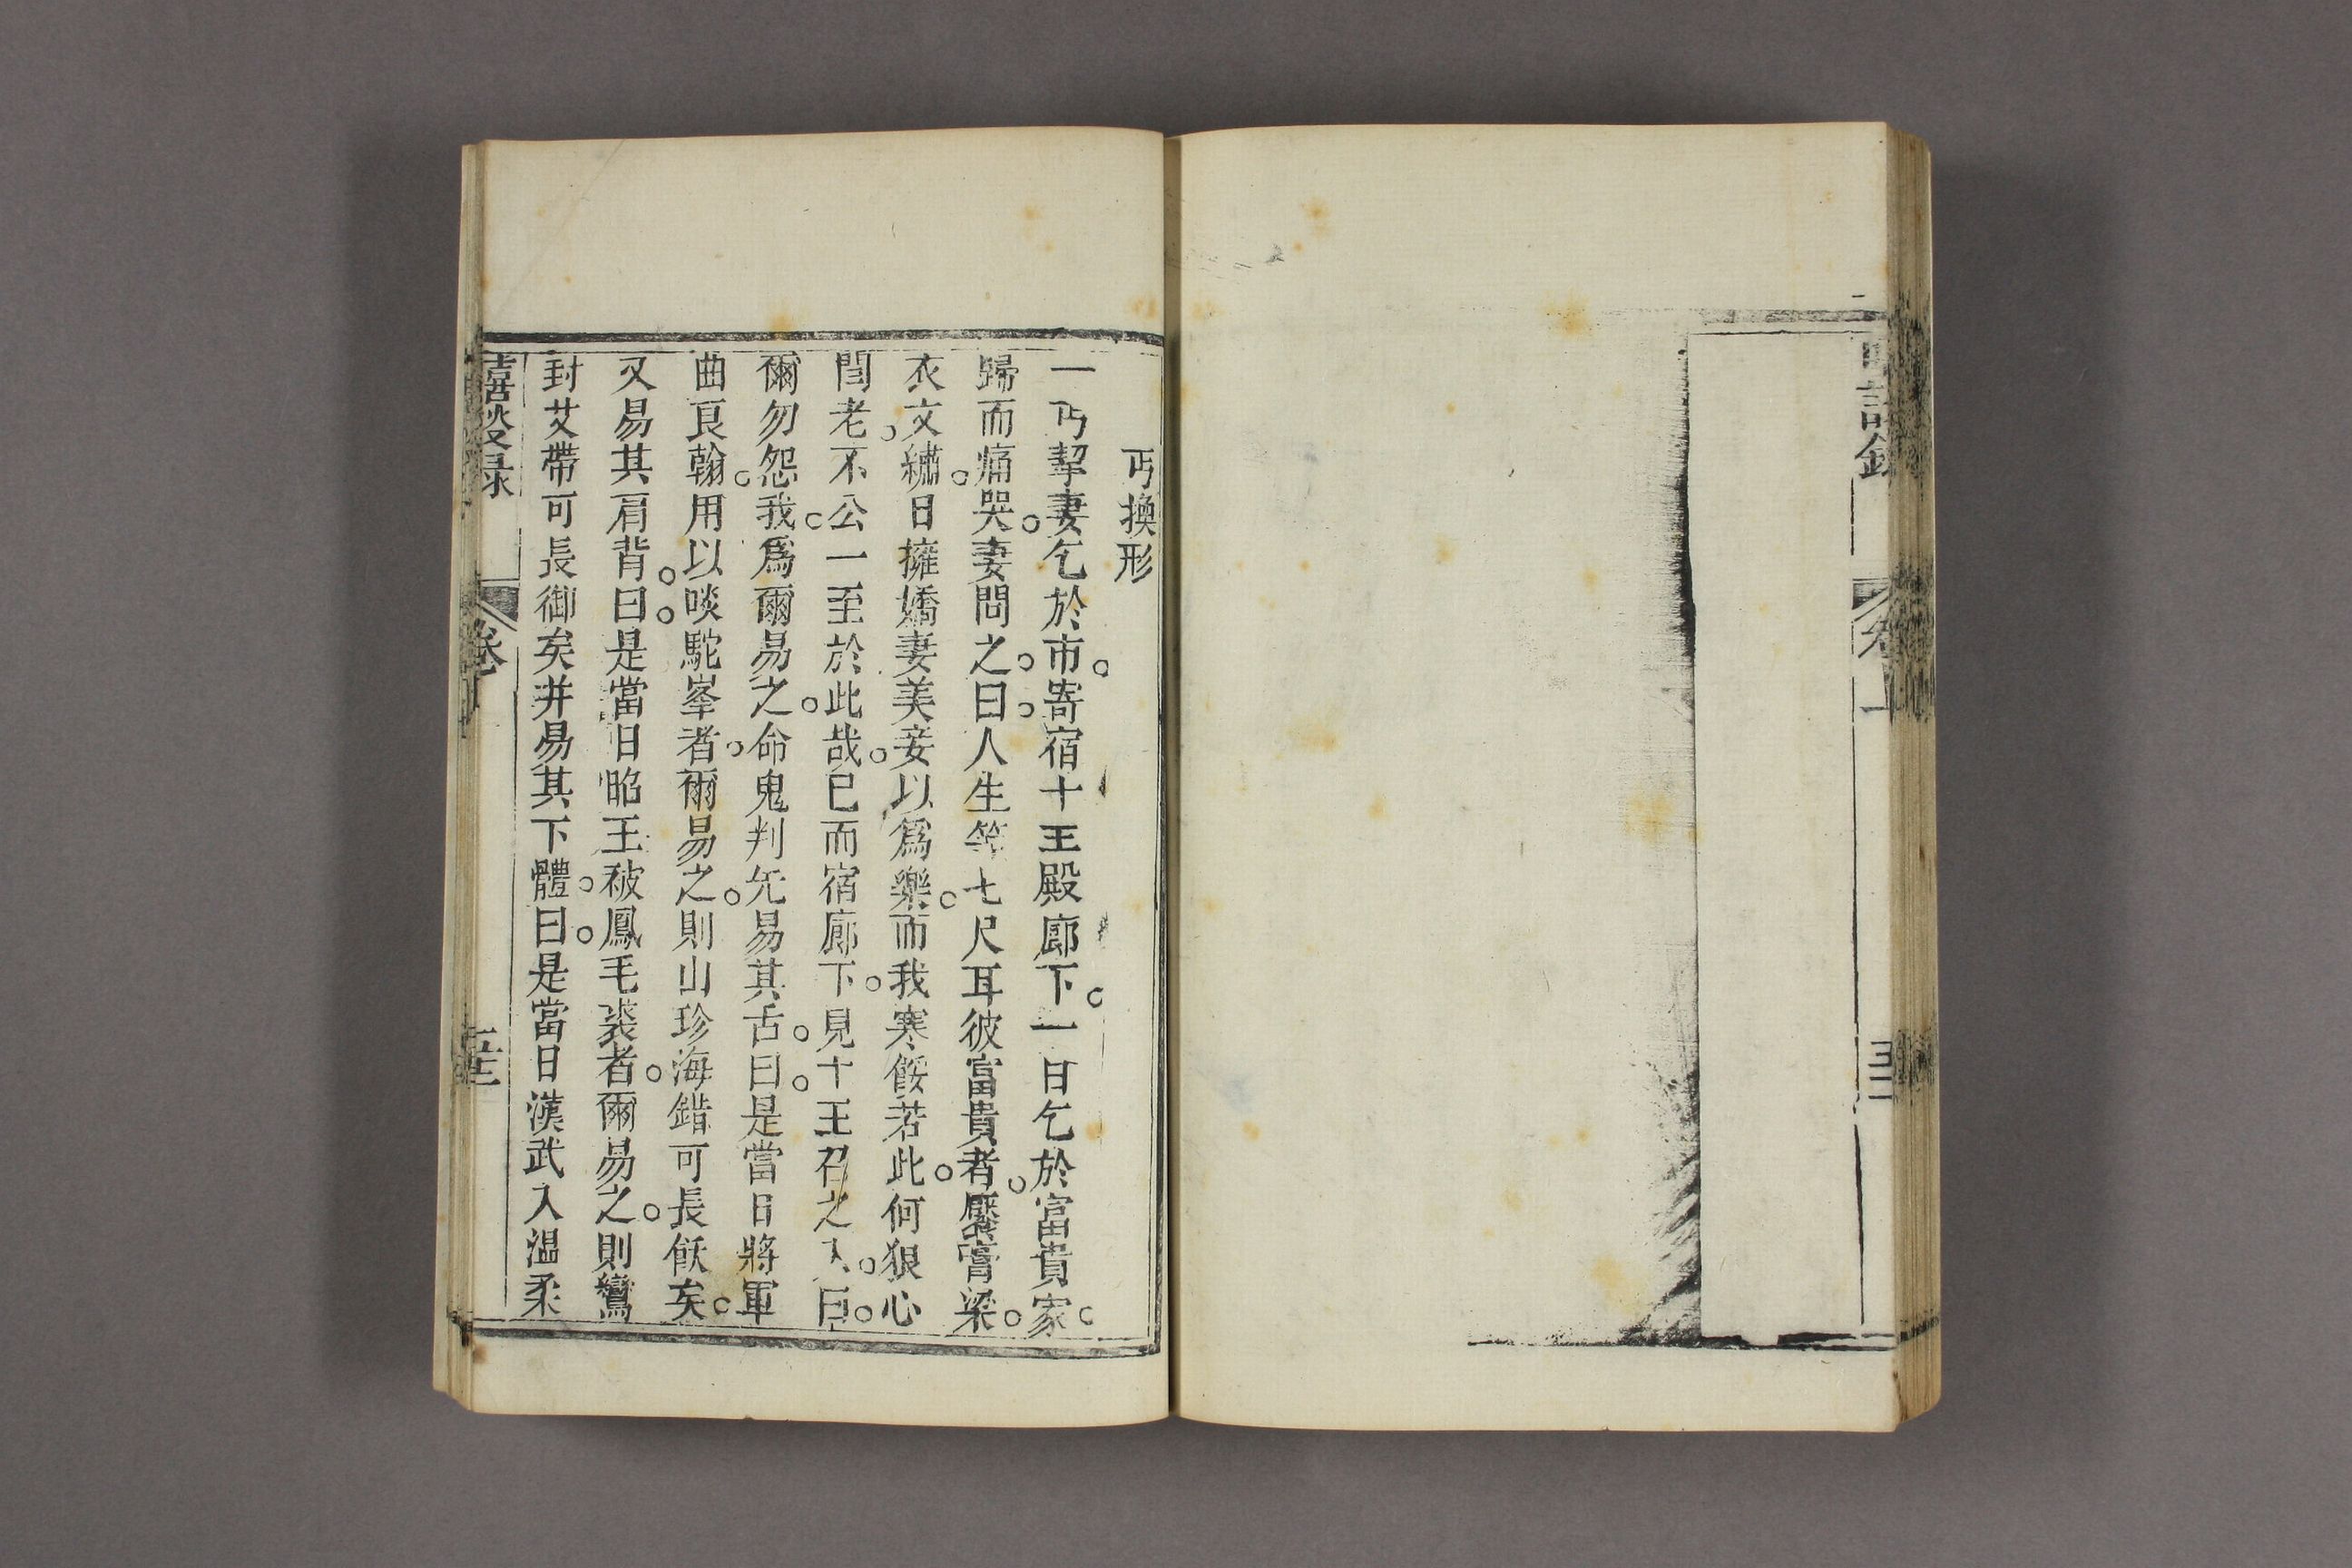 丐換形
一丐挈妻乞於市寄宿十王殿廊下一日乞於富貴家
歸而痛哭妻問之曰人生等七尺耳彼富貴者饜膏粱
衣文繡日擁嬌妻美妾以爲樂而我寒餒若此何狠心
閻老不公一至於此哉已而宿廊下見十王召之入曰
爾勿怨我爲爾易之命鬼判先易其舌曰是當日將軍
曲良翰用以啖駝峯者爾易之則山珍海錯可長飫矣
又易其肩背曰是當日昭王被鳳毛裘者爾易之則鸞
封艾帶可長御矣并易其下體曰是當日漢武入溫柔
嘻談錄
卷下
五三